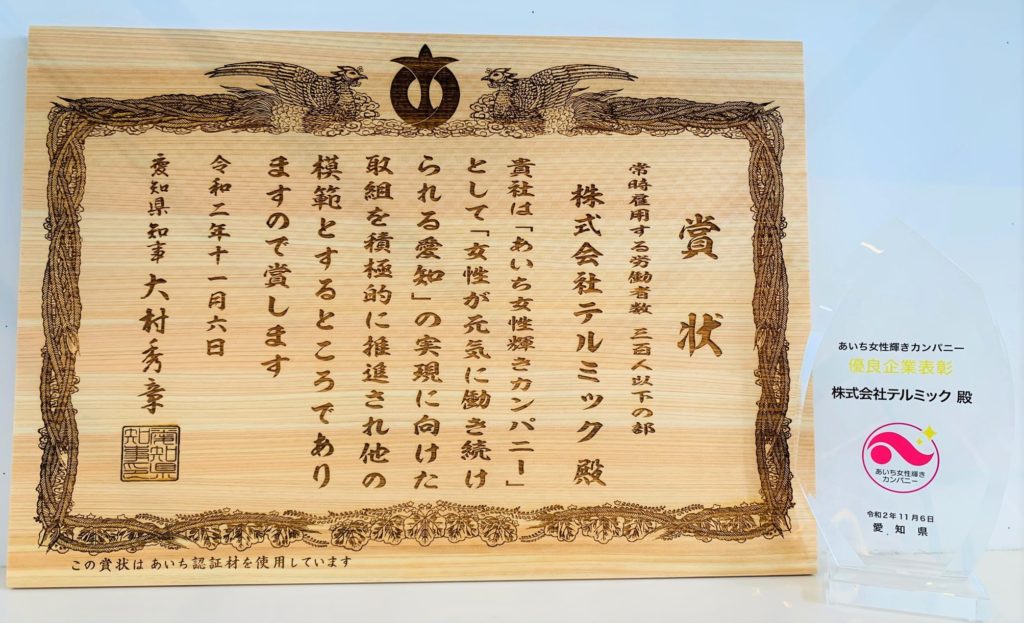 賞状
常時雇用する労働者数 三百人以下の部
株式会社テルミック 殿
貴社は「あいち女性輝きカンパニー」
として「女性が元気に働き続け
られる愛知」の実現に向けた
取組を積極的に推進され他の
模範とするところであり
ますので賞します
令和二年十一月六日
愛知県知事 大村秀章
愛知県
知事之
この賞状は あいち認証材を使用しています
あいち女性輝きカンパニー
優良企業表彰
株式会社テルミック 殿
あいち女性輝き
カンパニー
令和2年11月6日
愛知県